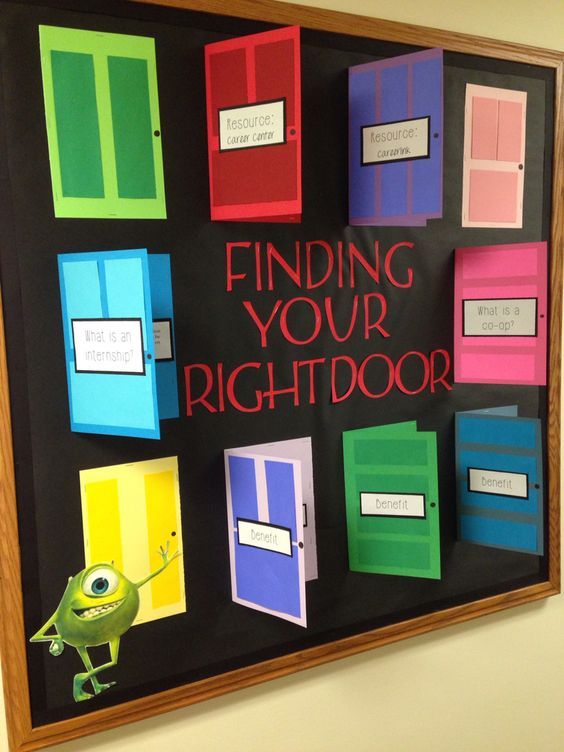 Resource:
career center
Resource:
careerlink
FINDING
YOUR
RIGHT DOOR
What is an
internship?
What is a
co-op?
Benefit
Benefit
Benefit